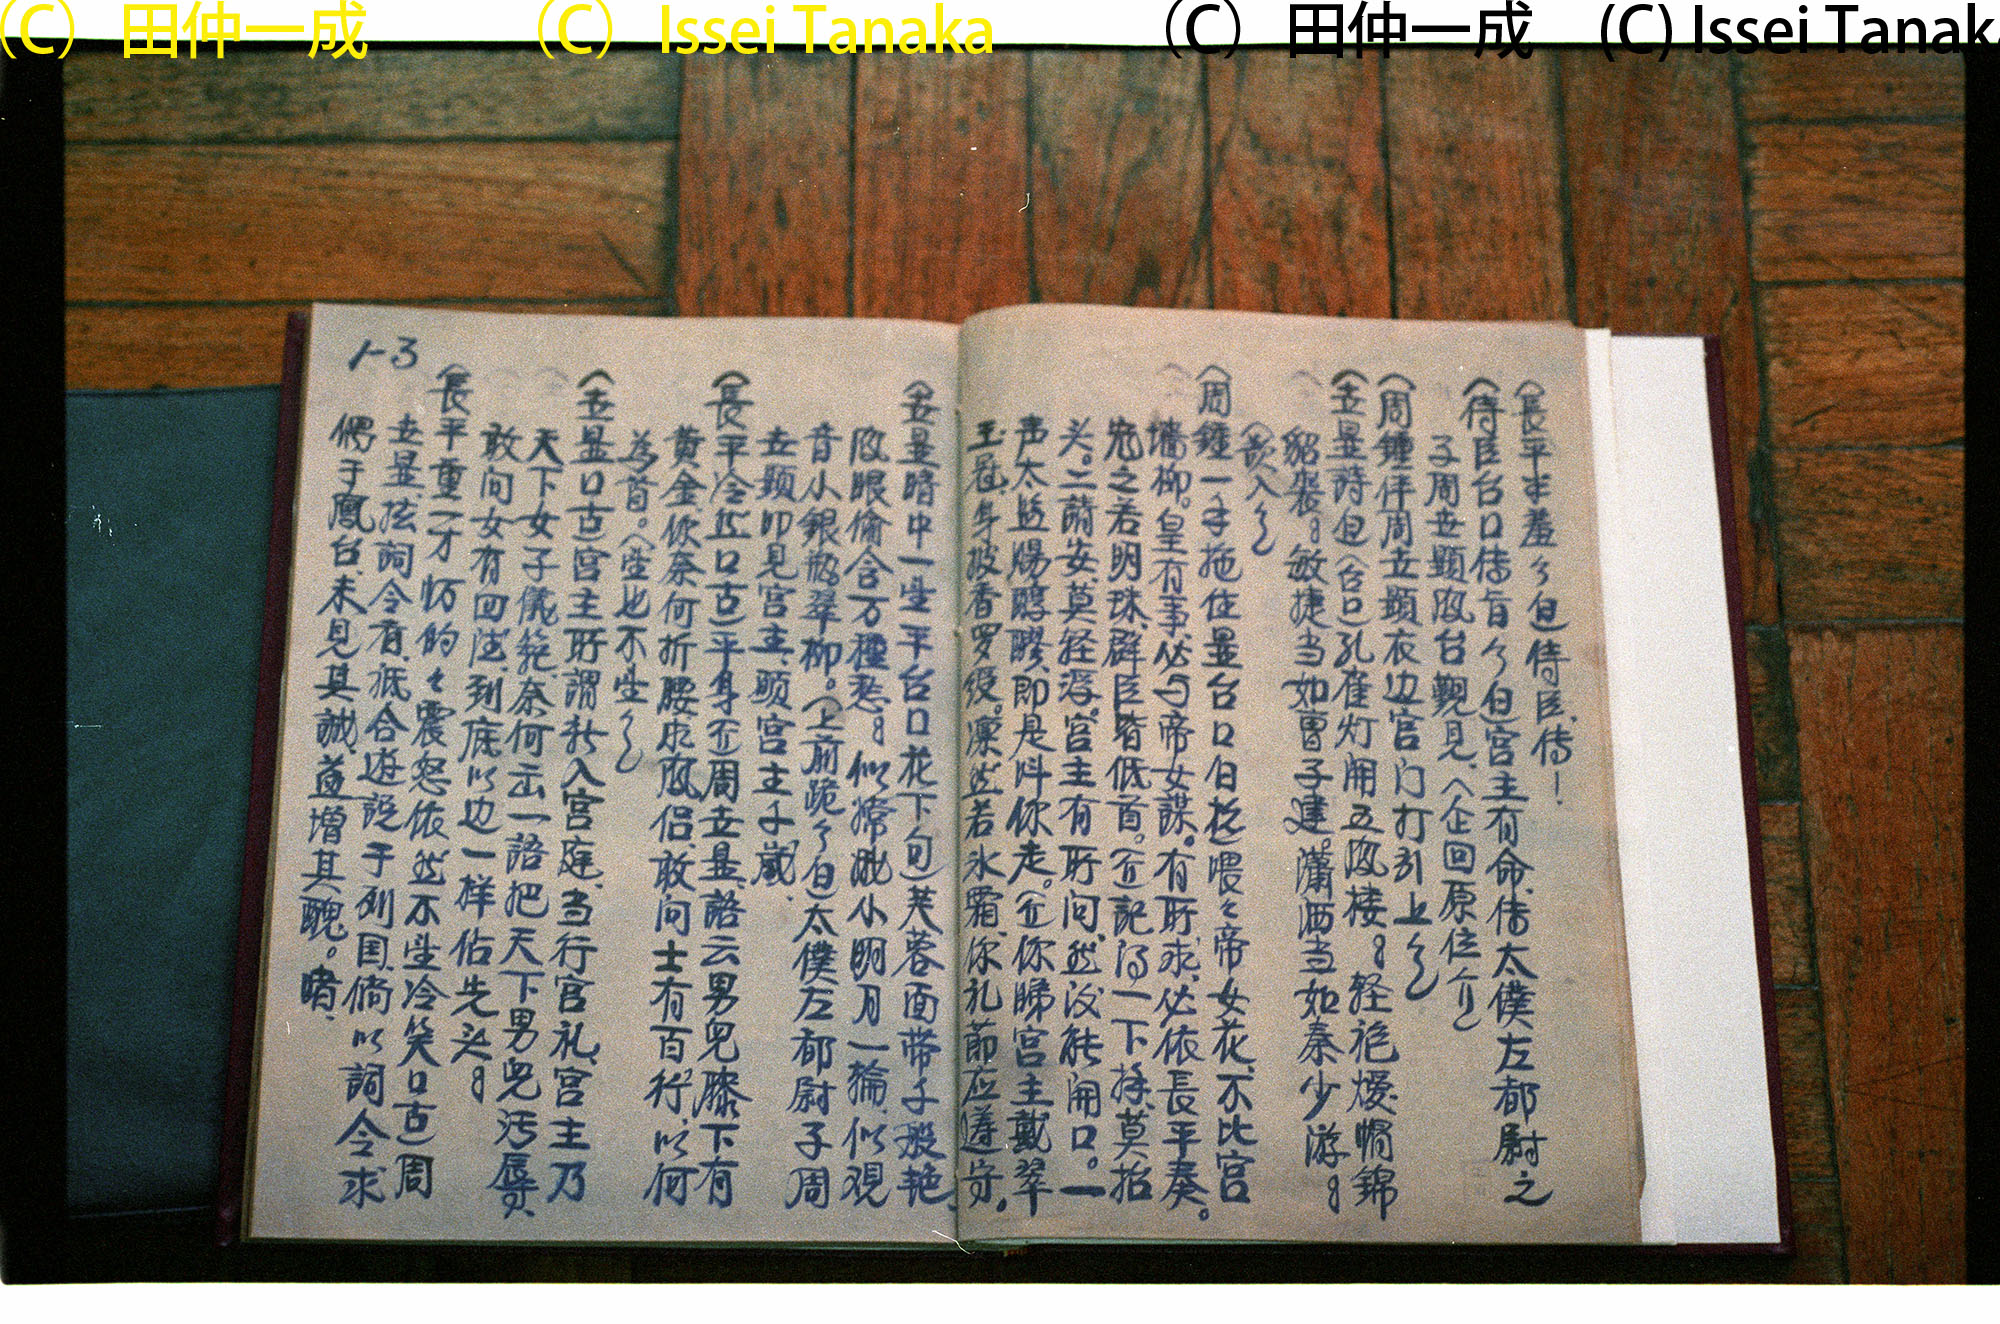 (C) 田仲一成 (C) Issei Tanaka (C) 田仲一成 (C) Issei Tanaka
(長平半羞介白)侍臣、传!
(侍臣台口传旨介白)宫主有命、传太僕左都尉之
子周世顯凤台觐见、(企回原位介)
(周鍾伴周世顯衣边宫门打引上介)
(世显詩白)(台口)孔雀灯開五凤楼。轻袍煖帽錦
貂裘。敏捷当如曹子建。瀟洒当如秦少游。
(欲入介)
(周鍾一手拖住显台口白)喂喂帝女花、不比宫
墙柳。皇有事必与帝女謀。有所求、必依長平奏。
宠之若明珠、群臣皆低首。記得一下拜、莫抬
头。二萠女、莫轻浮。宫主有所问、然后能開口。一
声太监赐醇醪、即是叫你走。你睇宫主戴翠
玉冠、身披香罗绶。凛然若氷霜、你礼節应遵守。
(世显暗中一坐平台口花下句)芙蓉面带千般艳、
凤眼偷含万種愁。似嫦娥小明月一輪、似观
音小銀瓶翠柳。(上前跪介白)太僕左都尉子周
世顯叩見宫主、願宫主千歲、
(長平冷然口古)平身周世显、語云男兒膝下有
黄金、你奈何折腰求凤侣、敢问士有百行、以何
為首。(坐也不坐介)
(世显口古)宫主所謂新入宫庭、当行宫礼、宫主乃
天下女子儀範、奈何出一語把天下男兒污辱、
敢问女有四德、到底以边一样佔先头。
(長平重一才怀的的震怒依然不坐冷笑口古)周
世显、弦詞令者、祇合遊説于列国、倘以詞令求
偶于鳳台、未見其誠、益增其醜。啫、
1-3